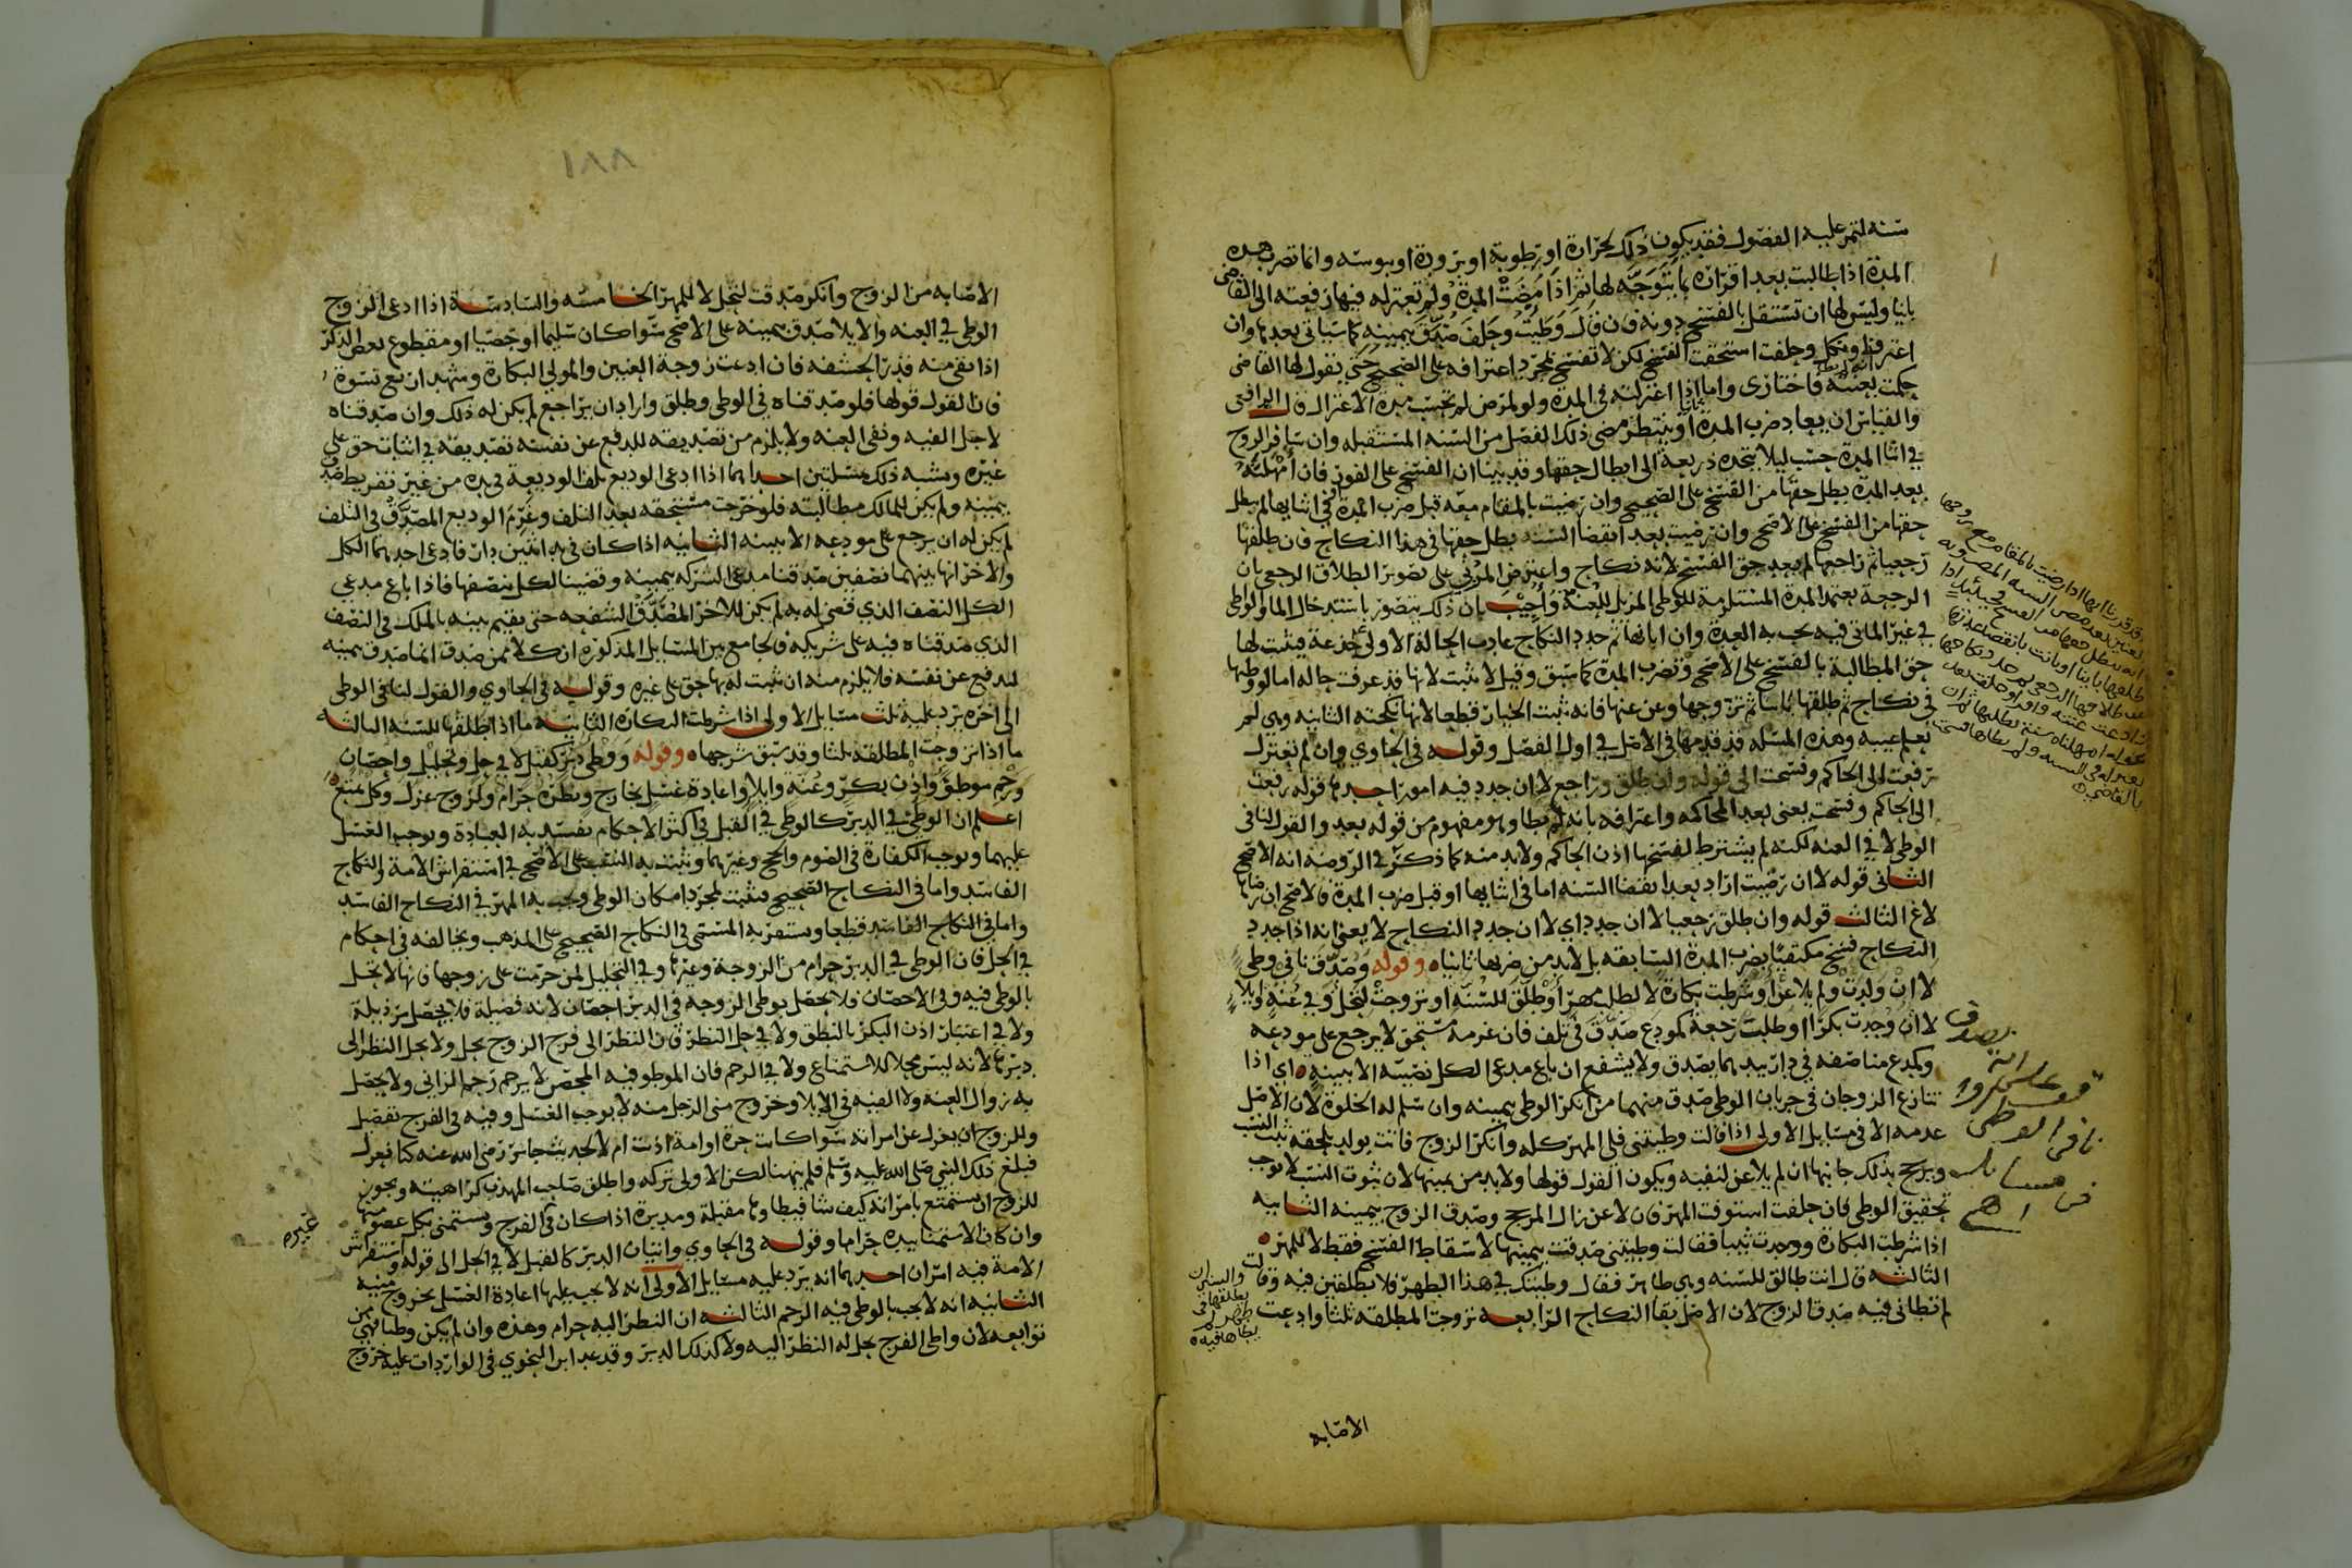 سنه لتمر عليه الفصول فقد يكون ذلك لحرارة او رطوبة او برودة او يبوسه وانما تضرب هذه
المدة اذا طالبت بعد اقراره بما يتوجه لها ثم اذا مضت المدة ولم تعتزله فيها رفعته الى القاضي
ثانيا وليس لها ان تستقل بالفسخ دونه فان قال وطيت وحلف صدق بيمينه كما سياتي بعد هذا وان
اعترف او نكل وحلفت استحقت الفسخ لكن لا تفسخ بمجرد اعترافه على الصحيح حتى يقول لها القاضي
حكمت بعنته فاختاري واما اذا اعتزلته في المدة ولو لمرض لم تحتسب مدة الاعتزال قال الرافعي
والقياس ان يعاد ضرب المدة او ينتظر مضي ذلك الفصل من السنه المستقبله وان سافر الزوج
في اثنا المدة حسب ليلا يتخذه ذريعة الى ابطال حقها وقد بينا ان الفسخ على الفور فان امهلته
بعد المدة بطل حقها من الفسخ على الصحيح وان رضيت بالمقام معه قبل ضرب المدة او في اثنايها لم يبطل
حقها من الفسخ على الاصح وان رضيت بعد انقضا السنه بطل حقها في هذا النكاح فان طلقها
رجعيا ثم راجعها لم يعد حق الفسخ لانه نكاح واعترض المزني على تصوير الطلاق الرجعي بان
الرجعة تعتمد المدة المستلزمة للوطي المزيل للعنة واجيب بان ذلك يتصور باستدخال الما والوطي
في غير الماتي فيه يجب به العدة وان ابانها ثم جدد النكاح عادت الحالة الاولى جذعة فيثبت لها
حق المطالبة بالفسخ على الاصح وتضرب المدة كما سبق وقيل لا يثبت لانها قد عرفت حاله اما لو وطيها
في نكاح ثم طلقها باينا ثم تزوجها وعن عنها فانه يثبت الخيار قطعا لانها نكحته الثانيه وهي لم
تعلم عيبه وهذه المسله قد قدمها في الاصل في اول الفصل وقوله في الحاوي وان لم تعتزل
رفعت الى الحاكم وفسخت الى قوله وان طلق وراجع لا ان جدد فيه امور احدها قوله رفعت
الى الحاكم وفسخت يعني بعد المحاكمه واعترافه بانه لم يطا وهو مفهوم من قوله بعد والقول لنافي
الوطي لا في العنه لكنه لم يشترط لفسخها اذن الحاكم ولا بد منه كما ذكر في الروضه انه الاصح
الثاني قوله لا ان رضيت اراد بعد انقضا السنه اما في اثنايها او قبل ضرب المدة فالاصح ان رضاها
لاغ الثالث قوله وان طلق رجعيا لا ان جدد اي لا ان جدد النكاح لا يعني انه اذا جدد
النكاح فسخ مكتفيا بضرب المدة السابقه بل لا بد من ضربها ثانيا وقوله وصدق نافي وطي
لا ان ولدت ولم يلاعن او شرطت بكارة لا لطلب مهر او طلق للسنه او تزوجت لتحل وفي عنة وايلا
لا ان وجدت بكرا او طلبت رجعة كمودع صدق في تلف فان غرمه مستحق لا يرجع على مودعه
وكمدع مناصفه في دار بيدهما يصدق ولا يشفع ان باع مدعي الكل نصيبه الا ببينه اي اذا
تنازع الزوجان في جريان الوطي صدق منهما من انكر الوطي بيمينه وان سلم له الخلوة لان الاصل
عدمه الا في مسايل الاولى اذا قالت وطيتني فلي المهر كله وانكر الزوج فاتت بولد يلحقه ثبت النسب
ويرجح بذلك جانبها ان لم يلاعن لنفيه ويكون القول قولها ولا بد من يمينها لان ثبوت النسب لا يوجب
تحقيق الوطي فان حلفت استوفت المهر فان لاعن زال المرجح وصدق الزوج بيمينه الثانيه
اذا شرطت البكارة ووجدت ثيبا فقالت وطيتني صدقت بيمينها لاسقاط الفسخ فقط لا للمهر
الثالثه قال انت طالق للسنه وهي طاهر فقال وطيتك في هذا الطهر فلا تطلقين فيه وقالت
لم تطاني فيه صدق الزوج لان الاصل بقا النكاح الرابعه تزوجت المطلقه ثلثا وادعت
الاصابه
نافي الوطي
يطاها فيه
بالقاضي
١٨٨
الاصابه من الزوج وانكر صدقت لتحل لا للمهر الخامسه والسادسه اذا ادعى الزوج
الوطي في العنه والايلا صدق بيمينه على الاصح سوا كان سليما او خصيا او مقطوع بعض الذكر
اذا بقي منه قدر الحشفه فان ادعت زوجة العنين والمولي البكارة وشهد اربع نسوة
فان القول قولها فلو صدقناه في الوطي وطلق واراد ان يراجع لم يكن له ذلك وان صدقناه
لاجل الفيه ونفى العنه ولا يلزم من تصديقه للدفع عن نفسه تصديقه في اثبات حق على
غيره وشبه ذلك مسلتين احداهما اذا ادعى الوديع تلف الوديعة في يده من غير تفريط صدق
بيمينه ولم يكن للمالك مطالبته فلو خرجت مستحقه بعد التلف وغرم الوديع المصدق في التلف
لم يكن له ان يرجع على مودعه الا ببينه الثانيه اذا كان في يد اثنين دار فادعى احدهما الكل
والاخر انها بينهما نصفين صدقنا مدعي الشركه بيمينه وقضينا لكل بنصفها فاذا باع مدعي
الكل النصف الذي قضي له به لم يكن للاخر المصدق الشفعه حتى يقيم بينه بالملك في النصف
الذي صدقناه فيه على شريكه فالجامع بين المسايل المذكوره ان كلا ممن صدق انما صدق بيمينه
لتدفع عن نفسه فلا يلزم منه ان يثبت له بها حق على غيره وقوله في الحاوي والقول لنافي الوطي
الى اخره يرد عليه ثلث مسايل الاولى اذا شرطت البكاره الثانيه ما اذا طلقها للسنه الثالثه
ما اذا تزوجت المطلقه ثلثا وقد سبق شرحها وقوله ووطي دبر كقبل لا في حل وتحليل واحصان
ورجم موطو واذن بكر وعنه وايلا واعادة غسل بخارج ونظره حرام ولزوج عزل وكل تمتع
اعلم ان الوطي في الدبر كالوطي في القبل في اكثر الاحكام يفسد به العبادة ويوجب الغسل
عليهما ويوجب الكفارة في الصوم والحج وغيرهما ويثبت به النسب على الاصح في استفراش الامة والنكاح
الفاسد واما في النكاح الصحيح فيثبت بمجرد امكان الوطي ويجب به المهر في النكاح الفاسد
واما في النكاح الفاسد قطعا ويستقر به المسمى في النكاح الصحيح على المذهب ويخالفه في احكام
في الحل فان الوطي في الدبر حرام من الزوجة وغيرها وفي التحليل لمن حرمت على زوجها فانها لا تحل
بالوطي فيه وفي الاحصان فلا يحصل بوطي الزوجه في الدبر احصان لانه فضيلة فلا يحصل برذيلة
ولا في اعتبار اذن البكر بالنطق ولا في حل النظر فان النظر الى فرج الزوج يحل ولا يحل النظر الى
دبرها لانه ليس محلا للاستمتاع ولا في الرجم فان الموطو فيه المحصن لا يرجم رجم الزاني ولا يحصل
به زوال العنه ولا الفيه في الايلا وخروج مني الرجل منه لا يوجب الغسل وفيه في الفرج تفصيل
وللزوج ان يعزل عن امراته سوا كانت حرة او امة اذنت ام لا لحديث جابر رضي الله عنه كنا نعزل
فبلغ ذلك النبي صلى الله عليه وسلم فلم ينهنا لكن الاولى تركه واطلق صاحب المهذب كراهيته ويجوز
للزوج ان يستمتع بامراته كيف شا فيطاوها مقبلة ومدبرة اذا كان في الفرج ويستمني بكل عضو منها
وان كان الاستمنا بيده حراما وقوله في الحاوي واتيان الدبر كالقبل لا في الحل الى قوله واستفراش
الامة فيه امران احدهما انه يرد عليه مسايل الاولى انه لا يجب عليها اعادة الغسل بخروج منيه
الثانيه انه لا يجب بالوطي فيه الرجم الثالثه ان النظر اليه حرام وهذه وان لم يكن وطيا فهي من
توابعه لان واطي الفرج يحل له النظر اليه ولا كذلك الدبر وقد عد ابن النحوي في الواردات عليه خروج
غيره